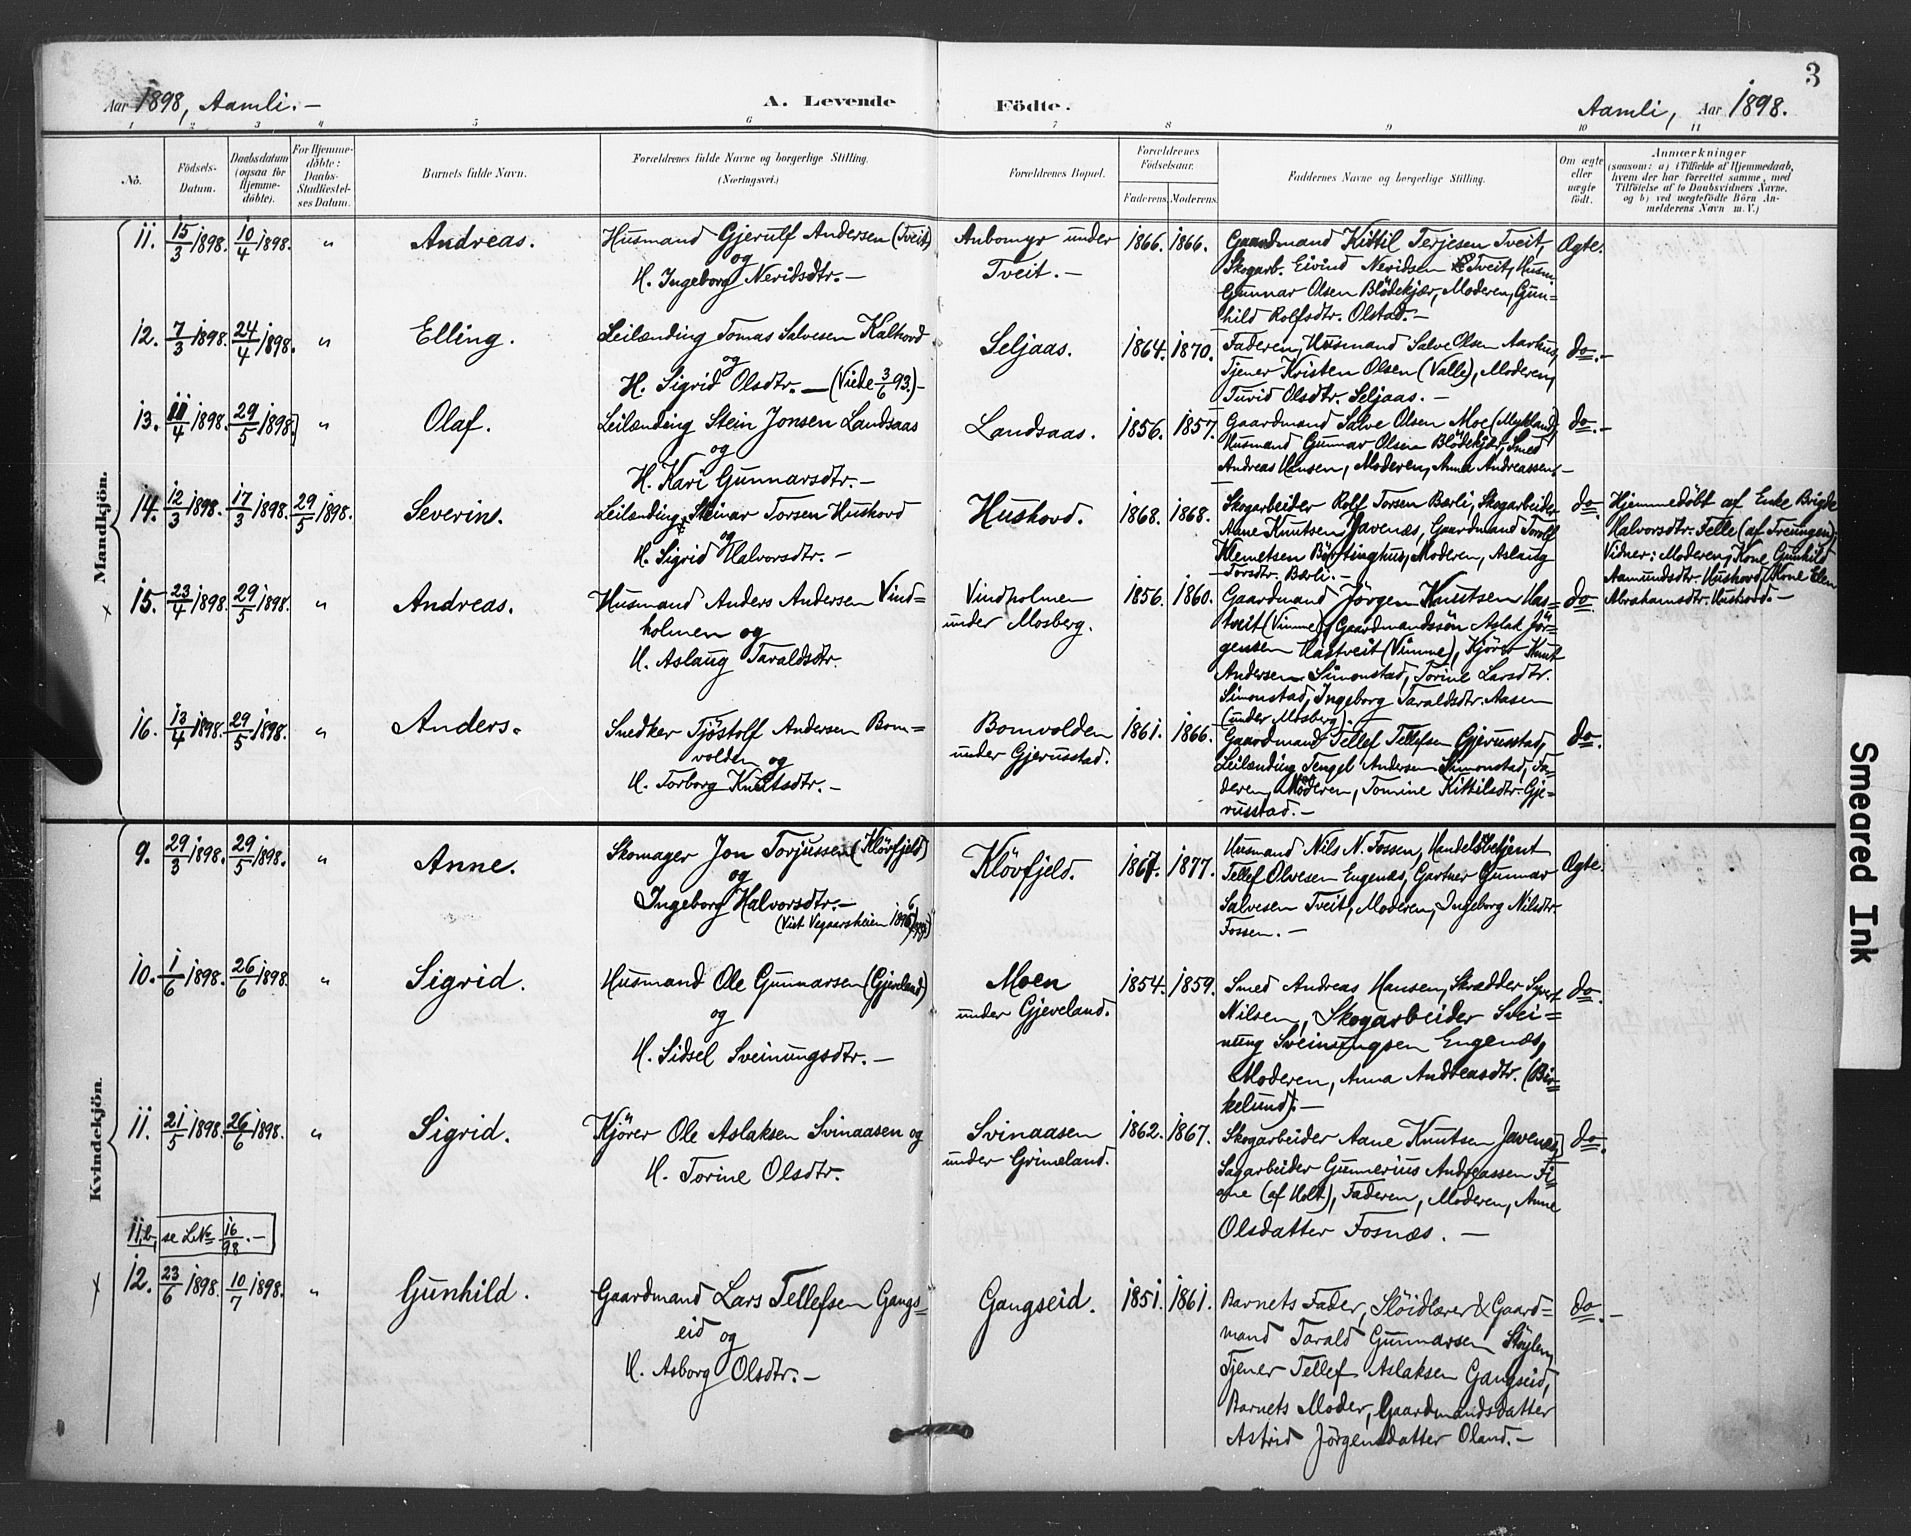 3
Aar 1898, Aamli. —
A. Levende Födte.
Aamli, Aar 1898.
1 2 3 4 5 6 7 8 9 10 11
No.
Födsels-Datum.
Daabsdatum (ogsaa for Hjemmedöbte).
For Hjemmedöbte: Daabs-Stadfæstelses Datum.
Barnets fulde Navn.
Forældrenes fulde Navne og borgerlige Stilling.
(Næringsvei.)
Forældrenes Bopæl.
Forældrenes Födselsaar.
Faderens. Moderens.
Faddernes Navne og borgerlige Stilling.
Om ægte eller uægte födt.
Anmærkninger
(saasom: a) i Tilfælde af Hjemmedaab,
hvem der har forrettet samme, med
Tilföielse af to Daabsvidners Navne.
og b) ved uægtefödte Börn An-
melderens Navn m. V.)
Mandkjön.
11. 15/3 1898. 10/4 1898. " Andreas.
Husmand Gjerulf Andersen (Tveit)
og
H. Ingeborg Neridsdtr. —
Aabomyr under
Tveit. —
1866. 1866.
Gaardmand Kittil Terjesen Tveit,
Skogarb. Eivind Neridsen Tveit, Husm.
Gunnar Olsen Blödekjær, Moderen, Gun-
hild Rolfsdtr. Olstad. —
Ægte.
12. 7/3 1898. 24/4 1898. " Elling.
Leilænding Tomas Salvesen Kalhovd
og
H. Sigrid Olsdtr. — (Viede 3/6 93.) —
Seljaas.
1864. 1870.
Faderen, Husmand Salve Olsen Aarhus,
Tjener Kristen Olsen (Valle), Moderen,
Turid Olsdtr. Seljaas. —
do. —
13. 11/4 1898. 29/5 1898. " Olaf.
Leilænding Stein Jonsen Landsaas
og
H. Kari Gunnarsdtr. —
Landsaas.
1856. 1857.
Gaardmand Salve Olsen Moe (Mykland),
Husmand Gunnar Olsen Blödekjær, Smed
Andreas Hansen, Moderen, Anna Andreassen. —
do. —
14. 12/3 1898. 17/3 1898. 29/5 1898. Severin.
Leilænding Steinar Torsen Hushovd
og
H. Sigrid Halvorsdtr. —
Hushovd.
1868. 1868.
Skogarbeider Rolf Torsen Bærli, Skogarbeider
Aane Knutsen Javenæs, Gaardmand Torolf
Klemetsen Börtinghus, Moderen, Aslaug
Torsdtr. Bærli. —
do.
Hjemmedöbt af Enke Brigde
Halvorsdtr. Felle (af Treungen)
Vidner: Moderen, Kone Gunhild
Aamundsdtr. Hushovd, Kone Elen
Abrahamsdtr. Hushovd. —
x 15. 23/4 1898. 29/5 1898. " Andreas.
Husmand Anders Andersen Vind=
holmen og
H. Aslaug Taraldsdtr.
Vindholmen
under Mosberg.
1856. 1860.
Gaardmand Jörgen Knutsen Has-
tveit (Vimme), Gaardmandssön Aslak Jör-
gensen Hastveit (Vimme), Kjörer Knut
Andersen Simonstad, Torine Larsdtr.
Simonstad, Ingeborg Taraldsdtr. Aasen
(under Mosberg). —
do.
16. 13/4 1898. 29/5 1898. " Anders.
Snedker Tjöstolf Andersen Bom=
volden og
H. Torborg Knutsdtr. —
Bomvolden
under Gjerusstad.
1861. 1866.
Gaardmand Tellef Tellefsen Gjerusstad,
Leilænding Tengel Andersen Simonstad, Fa-
deren, Moderen, Tomine Kittilsdtr. Gje-
russtad. —
do.
Kvindekjön.
9. 29/3 1898. 29/5 1898. " Anne.
Skomager Jon Torjussen (Klövfjeld)
og
Ingeborg Halvorsdtr. —
(Viet Vegaarsheien 1896
Klövfjeld.
1867. 1877.
Husmand Nils N. Fossen, Handelsbetjent
Tellef Olvesen Engenæs, Gartner Gunnar
Salvesen Tveit, Moderen, Ingeborg Nilsdtr.
Fossen. —
Ægte.
10. 1/6 1898. 26/6 1898. " Sigrid.
Husmand Ole Gunnarsen (Gjeveland)
og
H. Sidsel Sveinungsdtr. —
Moen
under Gjeveland.
1854. 1859.
Smed Andreas Hansen, Skrædder Syvert
Nilsen, Skogarbeider Svei=
nung Sveinungsen Engenæs,
Moderen, Anna Andreasdtr. (Bir-
kelund). —
do.
11. 21/5 1898. 26/6 1898. " Sigrid.
Kjörer Ole Aslaksen Svinaasen og
H. Torine Olsdtr.
Svinaasen
under Grimeland.
1862. 1867.
Skogarbeider Aane Knutsen Javenæs,
Sagarbeider Gunnerius Andreassen Fi-
ane (af Holt), Faderen, Moderen, Anne
Olsdatter Fosnæs. —
do.
11,b, se L.No. 16/98. —
x 12. 23/6 1898. 10/7 1898. " Gunhild.
Gaardmand Lars Tellefsen Gangs=
eid og
H. Asborg Olsdtr. —
Gangseid.
1851. 1861.
Barnets Fader, Slöidlærer & Gaard=
mand Tarald Gunnarsen Stöylen,
Tjener Tellef Aslaksen Gangseid,
Barnets Moder, Gaardmandsdatter
Astrid Jörgensdatter Oland. —
do. —
Smeared Ink